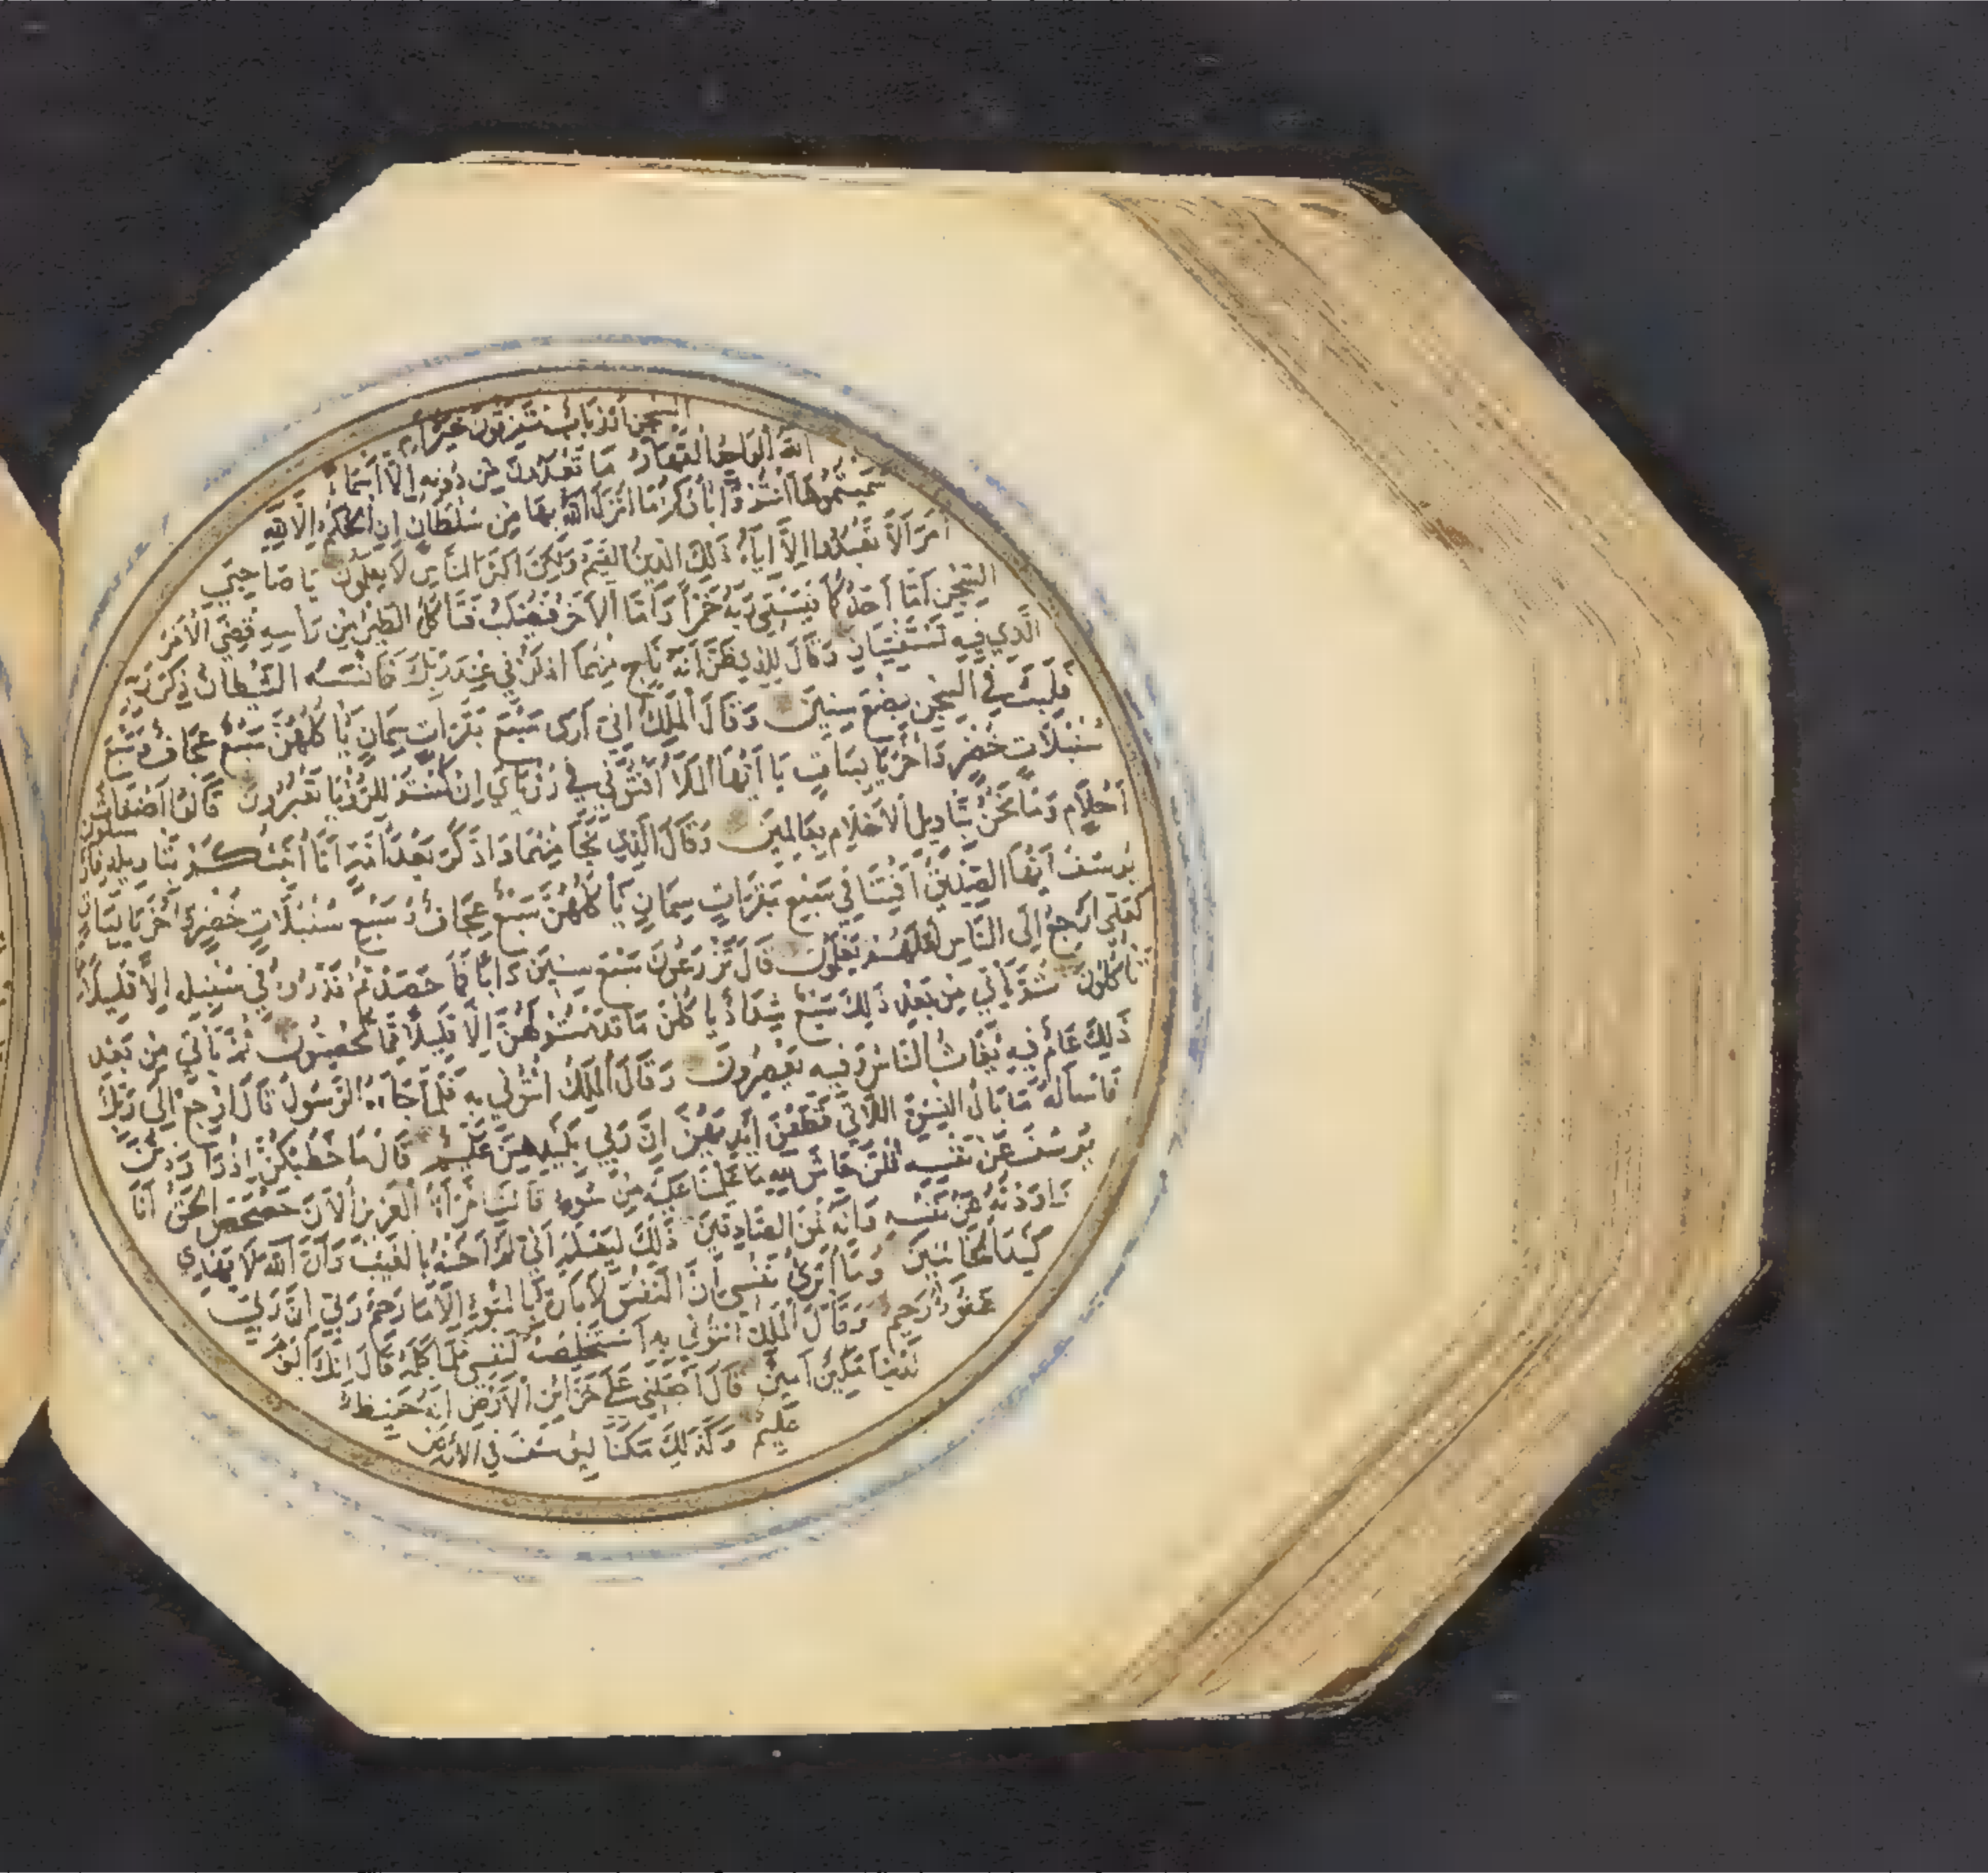 السجن أأرباب متفرقون خير أم
الله الواحد القهار ما تعبدون من دونه إلا أسماء
سميتموها أنتم وآباؤكم ما أنزل الله بها من سلطان إن الحكم إلا لله
أمر ألا تعبدوا إلا إياه ذلك الدين القيم ولكن أكثر الناس لا يعلمون يا صاحبي
السجن أما أحدكما فيسقي ربه خمرا وأما الآخر فيصلب فتأكل الطير من رأسه قضي الأمر
الذي فيه تستفتيان وقال للذي ظن أنه ناج منهما اذكرني عند ربك فأنسه الشيطان ذكر ربه
فلبث في السجن بضع سنين وقال الملك إني أرى سبع بقرات سمان يأكلهن سبع عجاف وسبع
سنبلات خضر وأخر يابسات يا أيها الملأ أفتوني في رؤياي إن كنتم للرؤيا تعبرون قالوا أضغاث
أحلام وما نحن بتأويل الأحلام بعالمين وقال الذي نجا منهما وادكر بعد أمة أنا أنبئكم بتأويله فأرسلون
يوسف أيها الصديق أفتنا في سبع بقرات سمان يأكلهن سبع عجاف وسبع سنبلات خضر وأخر يابسات
لعلي أرجع إلى الناس لعلهم يعلمون قال تزرعون سبع سنين دأبا فما حصدتم فذروه في سنبله إلا قليلا مما
تأكلون ثم يأتي من بعد ذلك سبع شداد يأكلن ما قدمتم لهن إلا قليلا مما تحصنون ثم يأتي من بعد
ذلك عام فيه يغاث الناس وفيه يعصرون وقال الملك ائتوني به فلما جاءه الرسول قال ارجع إلى ربك
فاسأله ما بال النسوة اللاتي قطعن أيديهن إن ربي بكيدهن عليم قال ما خطبكن إذ راودتن
يوسف عن نفسه قلن حاش لله ما علمنا عليه من سوء قالت امرأة العزيز الآن حصحص الحق أنا
راودته عن نفسه وإنه لمن الصادقين ذلك ليعلم أني لم أخنه بالغيب وأن الله لا يهدي
كيد الخائنين وما أبرئ نفسي إن النفس لأمارة بالسوء إلا ما رحم ربي إن ربي
غفور رحيم وقال الملك ائتوني به أستخلصه لنفسي فلما كلمه قال إنك اليوم
لدينا مكين أمين قال اجعلني على خزائن الأرض إني حفيظ
عليم وكذلك مكنا ليوسف في الأرض